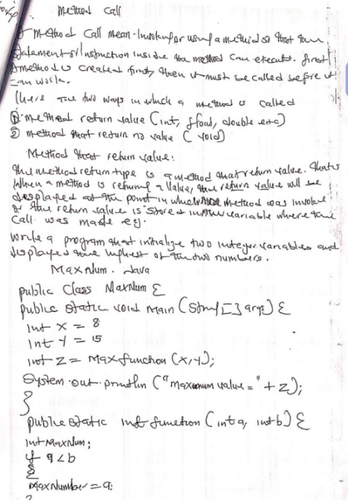 Method Call
Method Call mean Invoking or using a method so that the
statement or instruction inside the method can execute. first
A method is created first, then it must be called before it
can work.
there are two ways in which a method is called
① Method return value (int, float, double etc)
② Method that return no value (void)
Method that return value:
this method return type is a method that return value. that's
when a method is return a value, the return value will be
displayed at the point in which the method was invoke
the return value is stored in the variable where the
call was made eg.
write a program that initialize two integer variables and
displayed the highest of the two numbers.
MaxNum. Java
public Class MaxNum {
public static void main (String [] args) {
int x = 8
int y = 15
int z = Max function (x, y);
System.out.println ("maximum value = " + z);
}
public static int function (int a, int b) {
int MaxNum;
if a < b
{
MaxNumber = a;